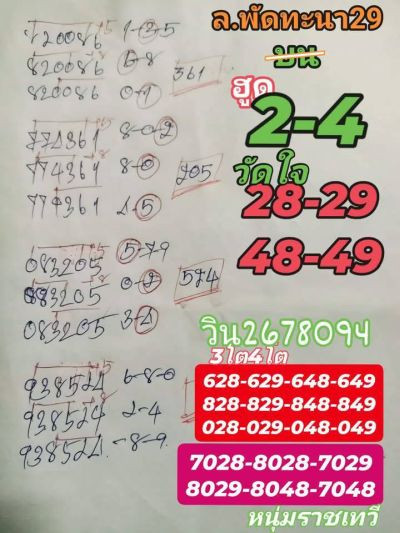 ล.พัดทะนา29
บน
ฮูด
2-4
วัดใจ
28-29
48-49
820086 1-3-5
820086 6-8 361
820086 0-1
774361 8-0-2
774361 8-0 205
774361 2-5
083205 5-79
083205 0-2 524
083205 3-2
938524 6-8-0
938524 2-4
938524 -8-9
วิน2678094
3โต4โต
628-629-648-649
828-829-848-849
028-029-048-049
7028-8028-7029
8029-8048-7048
หนุ่มราชเทวี